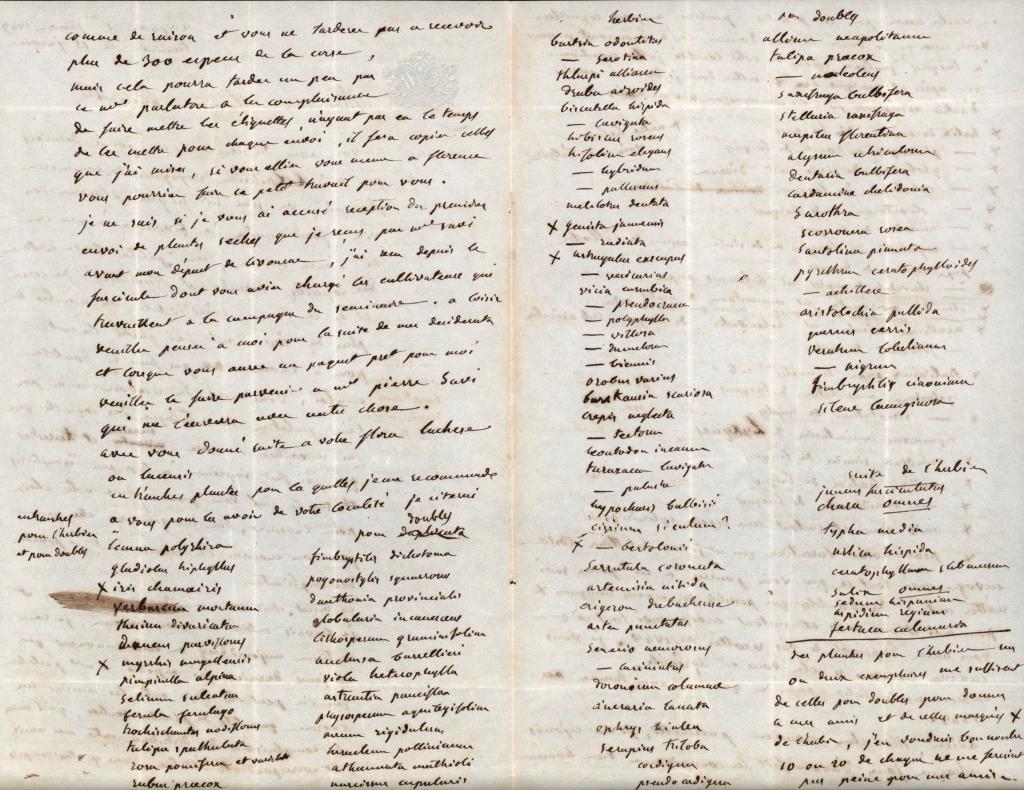 comme de raison et vous ne tarderez pas a recevoir
plus de 300 especes de la corse
mais cela pourra tarder un peu, par
ce mr parlatore a la complaisance
de faire mettre les étiquettes n'ayant pas eu le temps
de les mettre pour chaque envoi, il fera copier celles
que j'ai mises, si vous alliez vous meme a florence
vous pourriez faire ce petit travail pour vous.
je ne sais si je vous ai accusé reception du premier
envoi de plantes seches que je reçus par mr savi
avant mon départ de livourne, j'ai vu depuis le
fascicule dont vous aviez chargé les cultivateurs qui
travaillent a la campagne du seminaire. a loisir
veuillez penser a moi pour la suite de mes desiderata
et lorsque vous aurez un paquet pret pour moi
veuillez le faire parvenir a mr pierre Savi
qui me l'enverra avec autre chose.
avez vous donné suite a votre flora luchese
ou lucensis
entr'autres plantes pour la quelles je me recommande
a vous pour les avoir de votre localité je citerai
entrautres
pour l'herbier
et pour doubles
lemna polyrhiza
gladiolus triphyllus
x iris chamaeiris
verbascum montanum
thesium divaricatum
daucus parviflorus
x myrrhis magellensis
pimpinella alpina
selinum
ferula ferulago
trochiscanthes nodiflorus
tulipa spathulata
rosa pomifera et
rubus praecox
doubles
pour duplicata
fimbrystilis dichotoma
pogonostylis squarrosus
danthonia provincialis
globularia incanescens
lithospermum graminifolium
anchusa barrellieri
viola heterophylla
arthantia pauciflora
physospermum aquilegifolium
meum rigidulum
heracleum pollinianum
athamanta mathioli
narcissus cupularis
herbier
bartsia odontites
— serotina
thlaspi alliaceum
draba aizoides
biscutella hispida
— laevigata
hibiscus roseus
trifolium elegans
— hybridum
— pallidum
melilotus dentata
x genista januensis
— radiata
x astragalus exscapus
— vesicarius
vicia
— pseudocracca
— polyphylla
— villosa
— dumetorum
— biennis
orobus varius
barkhausia scariosa
crepis neglecta
— tectorum
leontodon incanum
taraxacum laevigatum
— palustre
hypochaeris balbisii
cirsium siculum?
x — bertolonii
serratula coronata
artemisia nitida
erigeron
aster punctatus
senecio nemorosus
—
doronicum columnae
cineraria laxata
ophrys hiulca
serapias triloba
cordigera
pseudo cordigera
pour doubles
allium neapolitanum
tulipa praecox
— maleolens
saxifraga bulbifera
stellaria saxifraga
mespilus florentina
alyssum utriculatum
dentaria bulbifera
cardamine chelidonia
sarothra
scorzonera rosea
santolina pinnata
pyrethrum ceratophylloides
— achilleae
aristolochia pallida
quercus cerris
veratrum lobelianum
— nigrum
fimbrystilis cioniana
silene lanuginosa
suite de l'herbier
juncus fasciculatus
chara omnes
typha media
urtica hispida
ceratophyllum submersum
salix omnes
sedum hispanicum
aspidium regium
festuca calamaria
des plantes pour l'herbier un
ou deux exemplaires me suffisent
de celles pour doubles pour donner
a mes amis et de celles marqués x
de l'herbier, j'en voudrais bon nombre
10 ou 20 de chaque ne me feraient
pas peine pour mes amis.